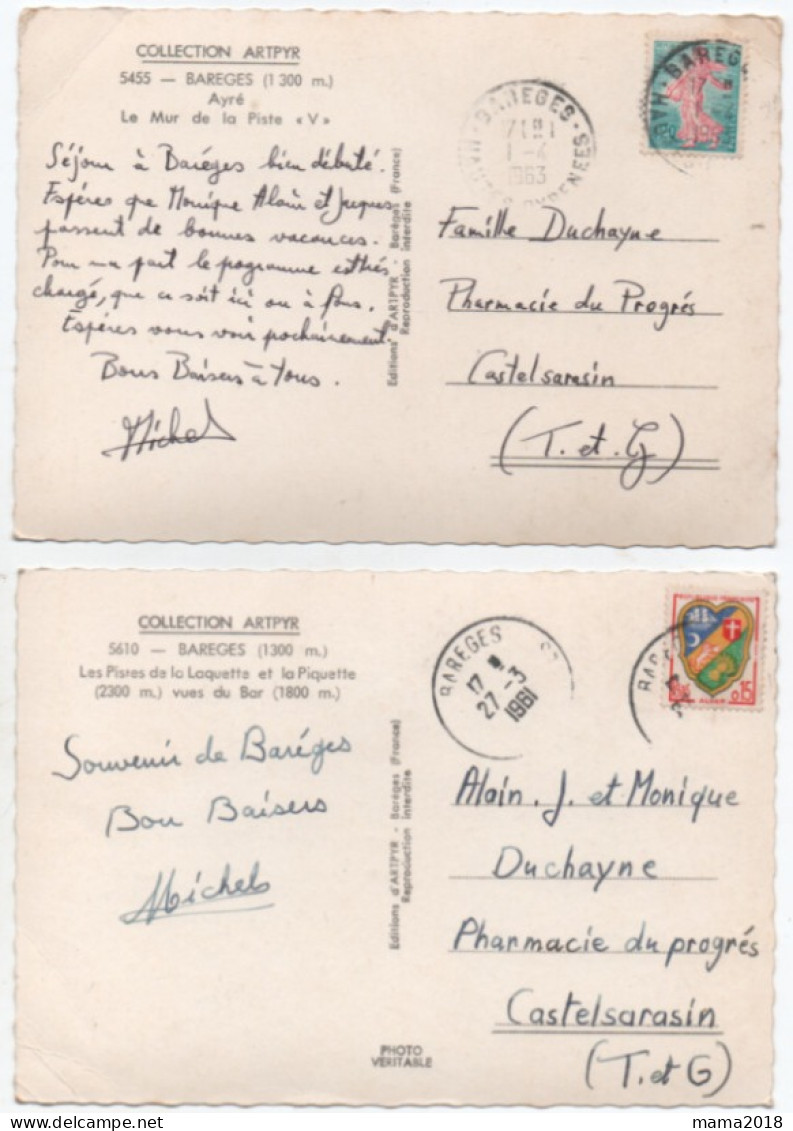 COLLECTION ARTPYR
5455 — BAREGES (1 300 m.)
Ayré
Le Mur de la Piste «V»
Séjour à Baréges bien débuté.
Espéres que Monique Alain et Jacques
passent de bonnes vacances.
Pour ma part le programme est trés
chargé, que ce soit ici ou à
Espéres vous voir prochainement.
Bons Baisers à tous.
Michel
Editions d'ARTPYR - Barèges (France)
Reproduction interdite
BAREGES
17 H
1-4
1963
HAUTES PYRENEES
BAREGES
Famille Duchayne
Pharmacie du Progrés
Castelsarasin
(T. et. G)
COLLECTION ARTPYR
5610 — BAREGES (1300 m.)
Les Pistes de la Laquette et la Piquette
(2300 m.) vues du Bar (1800 m.)
Souvenir de Baréges
Bon Baisers
Michel
Editions d'ARTPYR - Barèges (France)
Reproduction interdite
PHOTO
VERITABLE
BAREGES
17 H
27-3
1961
REPUBLIQUE FRANÇAISE
0.15
ALGER
Alain. J. et Monique
Duchayne
Pharmacie du progrés
Castelsarasin
(T. et G)
delcampe.net
mama2018